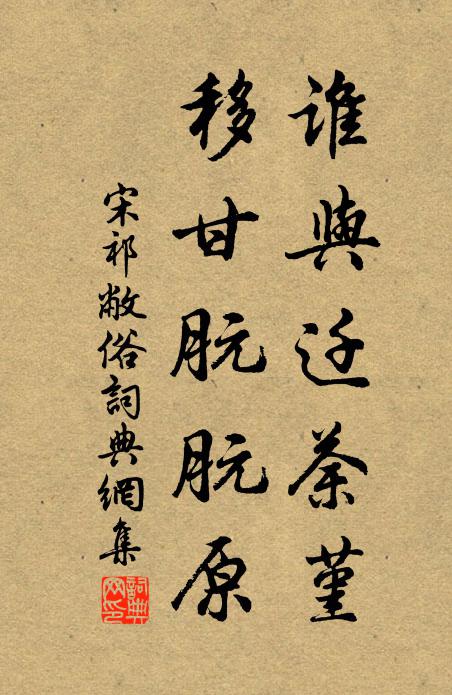 誰與迁荼堇
移甘朊朊原
宋祁敝俗詞典網集
詞典
网印